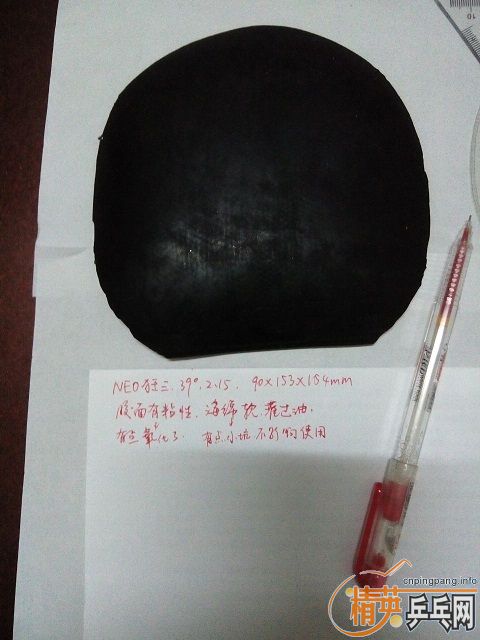 NEO狂三, 39°, 2.15, 90×153×154mm
胶面有粘性, 海绵软, 灌过油.
有点氧化了. 有点小坑 不影响使用
cnpingpang.info
精英乒乓网
10